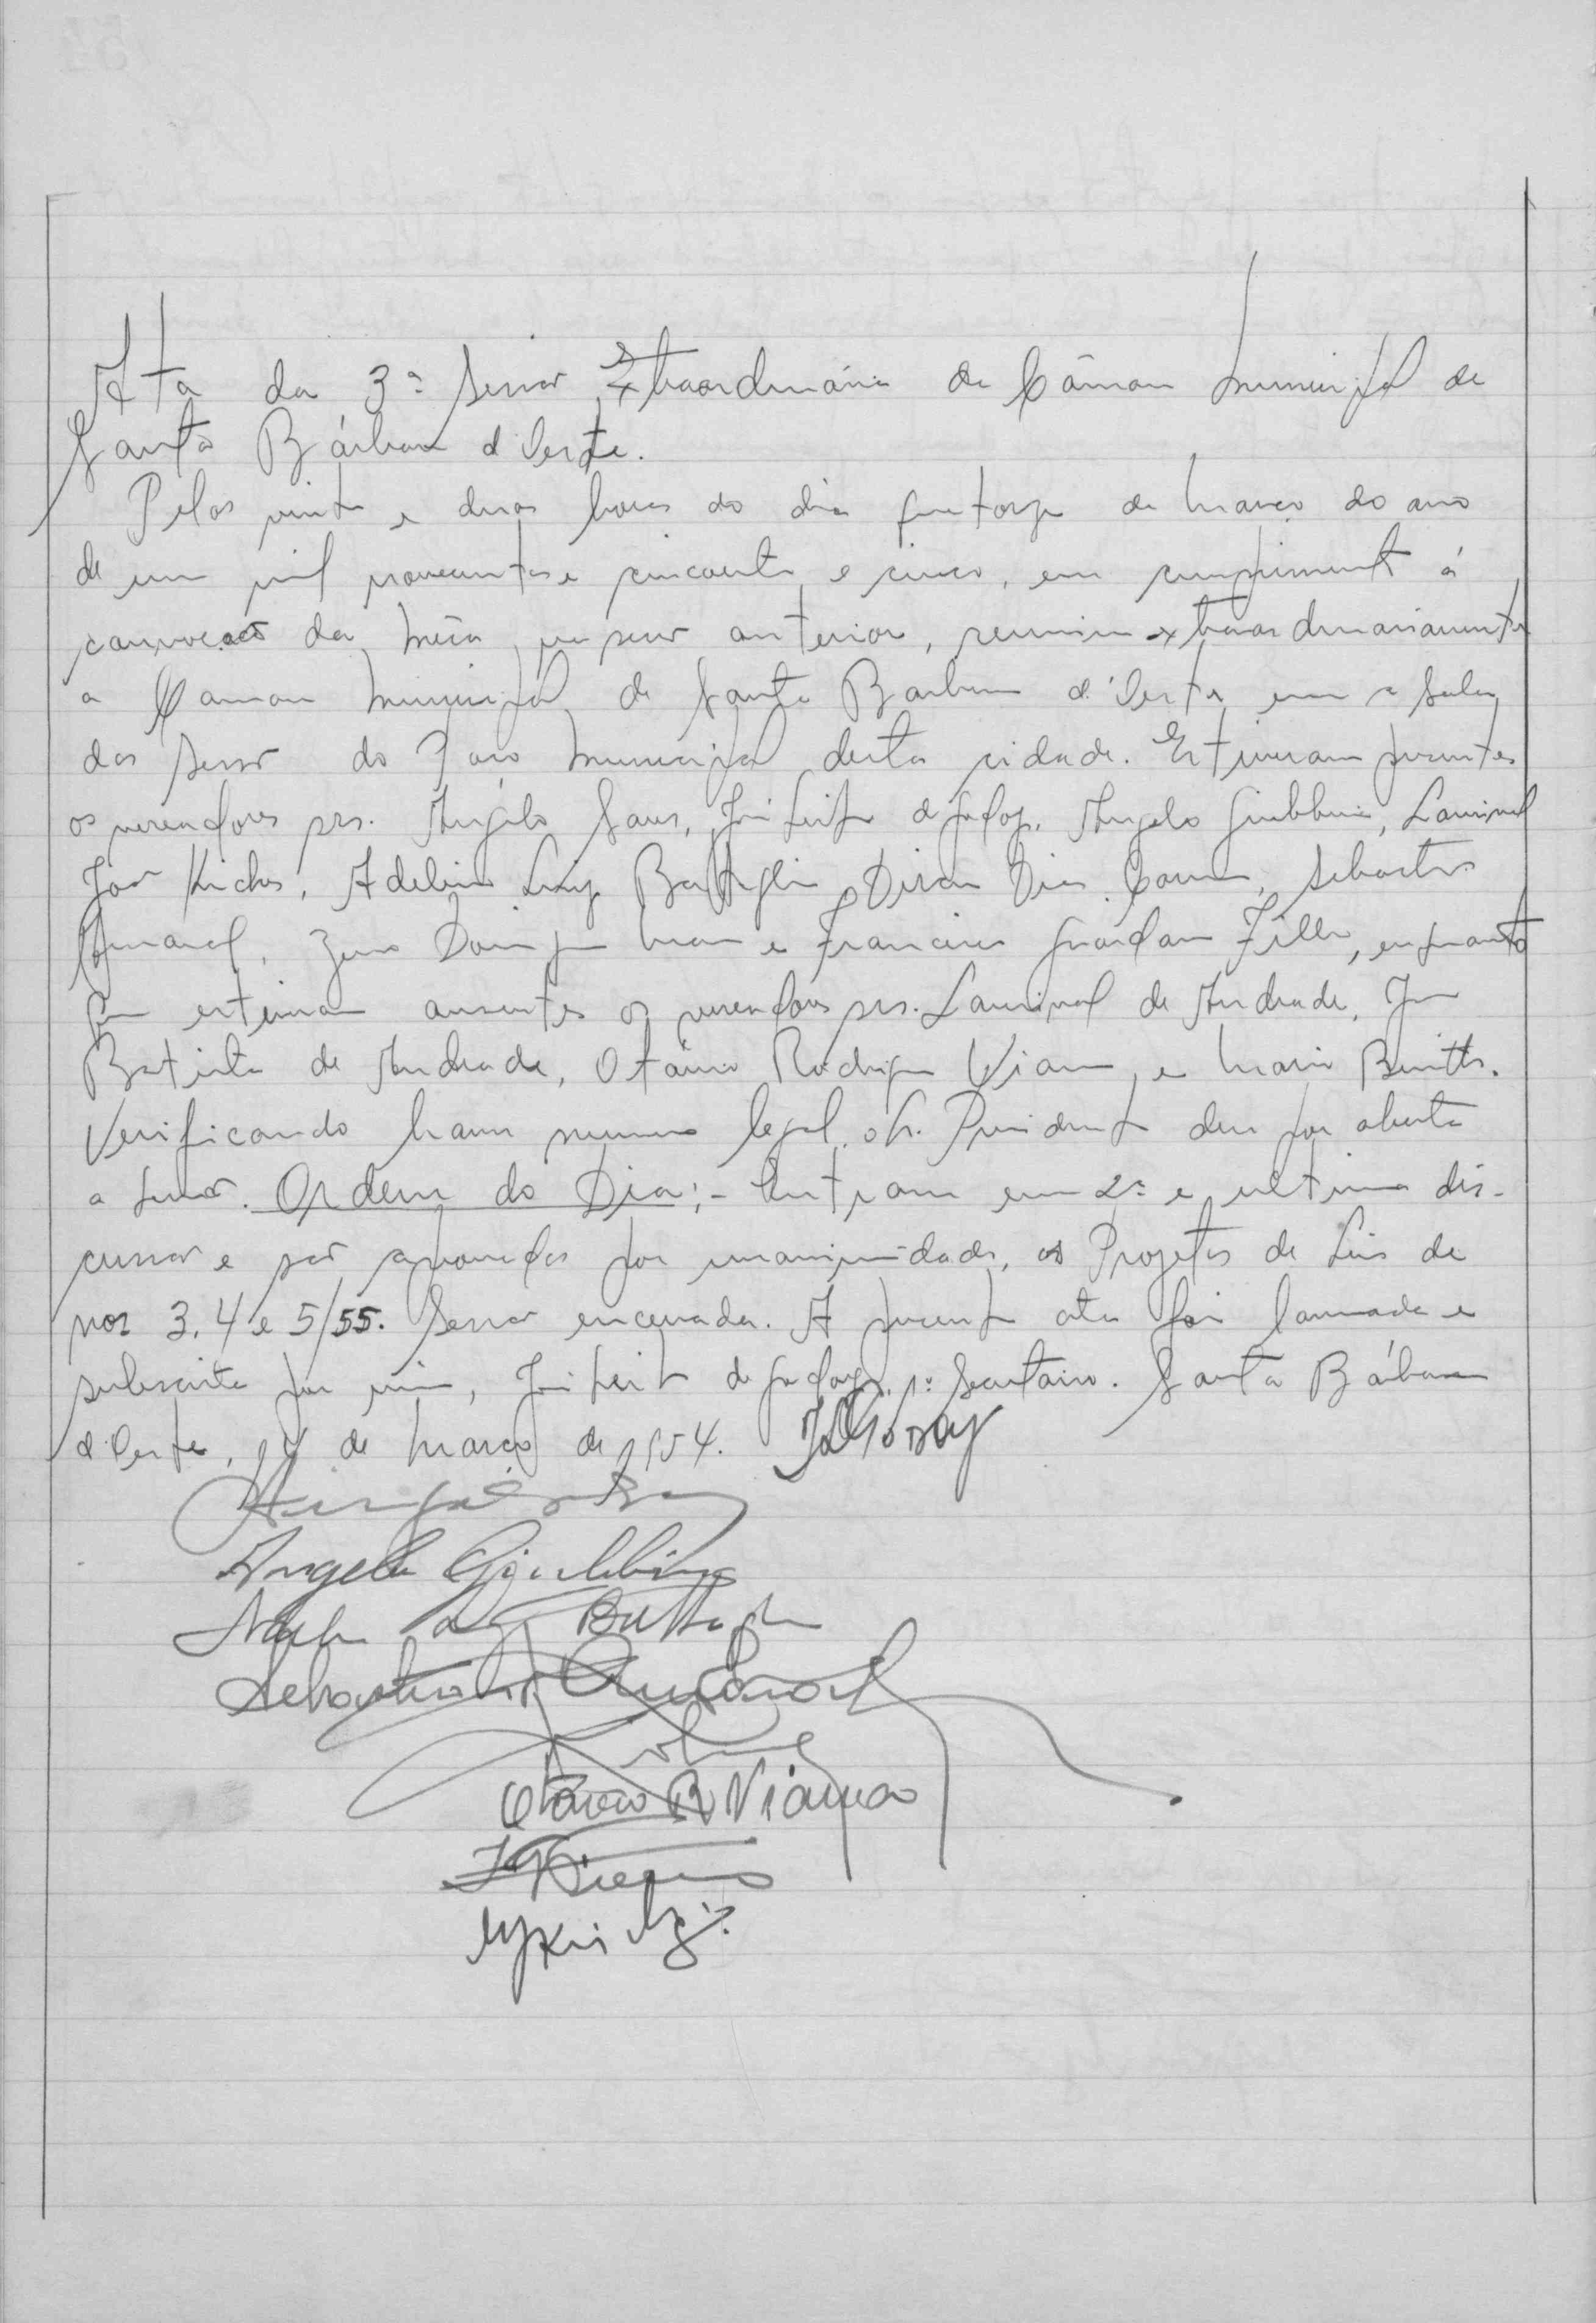 Ata da 3ª Sessão Extraordinária da Câmara Municipal de
Santa Bárbara d'Oeste.
Pelas vinte e duas horas do dia quatorze de março do ano
de um mil novecentos e cincoenta e cinco, em cumprimento á
convocação da mesa na sessão anterior, reuniu extraordinariamente
a Camara Municipal de Santa Barbara d'Oeste, em a sala
das sessões do Paço Municipal desta cidade. Estiveram presentes
os vereadores srs. Angelo Sans, de Godoy, Angelo Giubbina, Laurival
João, Adelino Luiz Battaglia, Dirceu Dias Carneiro, Sebastião
Amaral, Zeno Maia e Francisco Filho, enquanto
que estiveram ausentes os vereadores srs. Laurival de Andrade,
Batista de Andrade, Otávio Rodrigues Viana, e Mario
Verificando haver numero legal, o Sr. Presidente deu por aberta
a sessão. Ordem do Dia:- Entram em 2ª e ultima dis-
cussão e são aprovados por unanimidade, os Projetos de Leis de
nos 3, 4 e 5/55. Sessão encerrada. A presente ata foi lavrada e
subscrita por mim, de Godoy, 1º Secretário. Santa Bárbara
d'Oeste, 14 de março de 1954.
Angelo Giubbina
Luiz Battaglia
Sebastião Amaral
Otavio R Vianna